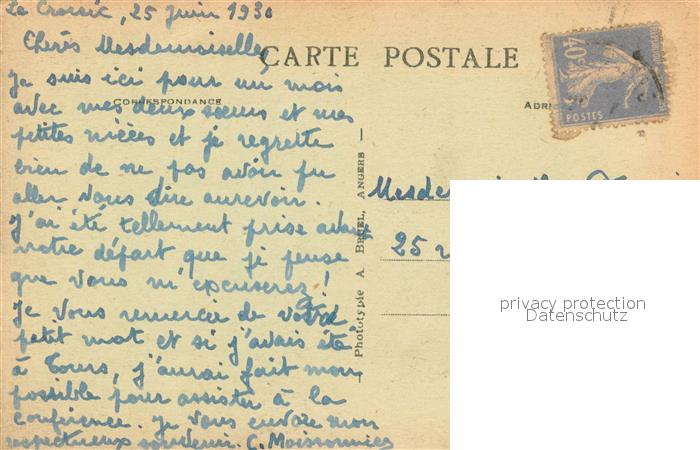 Le Croisic, 25 Juin 1930
Chères Mesdemoiselles,
CARTE POSTALE
Je suis ici pour un mois
avec mes deux sœurs et mes
CORRESPONDANCE
petites nièces et je regrette
bien de ne pas avoir pu
aller vous dire aurevoir.
J'ai été tellement prise avant
notre départ que je pense
que vous m'excuserez!
Je vous remercie de votre
petit mot et si j'avais été
à Tours, j'aurai fait mon
possible pour assister à la
conférence. Je vous envoie mon
respectueux souvenir. C.
Phototypie A. BRUEL, ANGERS
40c
POSTES
25
privacy protection
Datenschutz